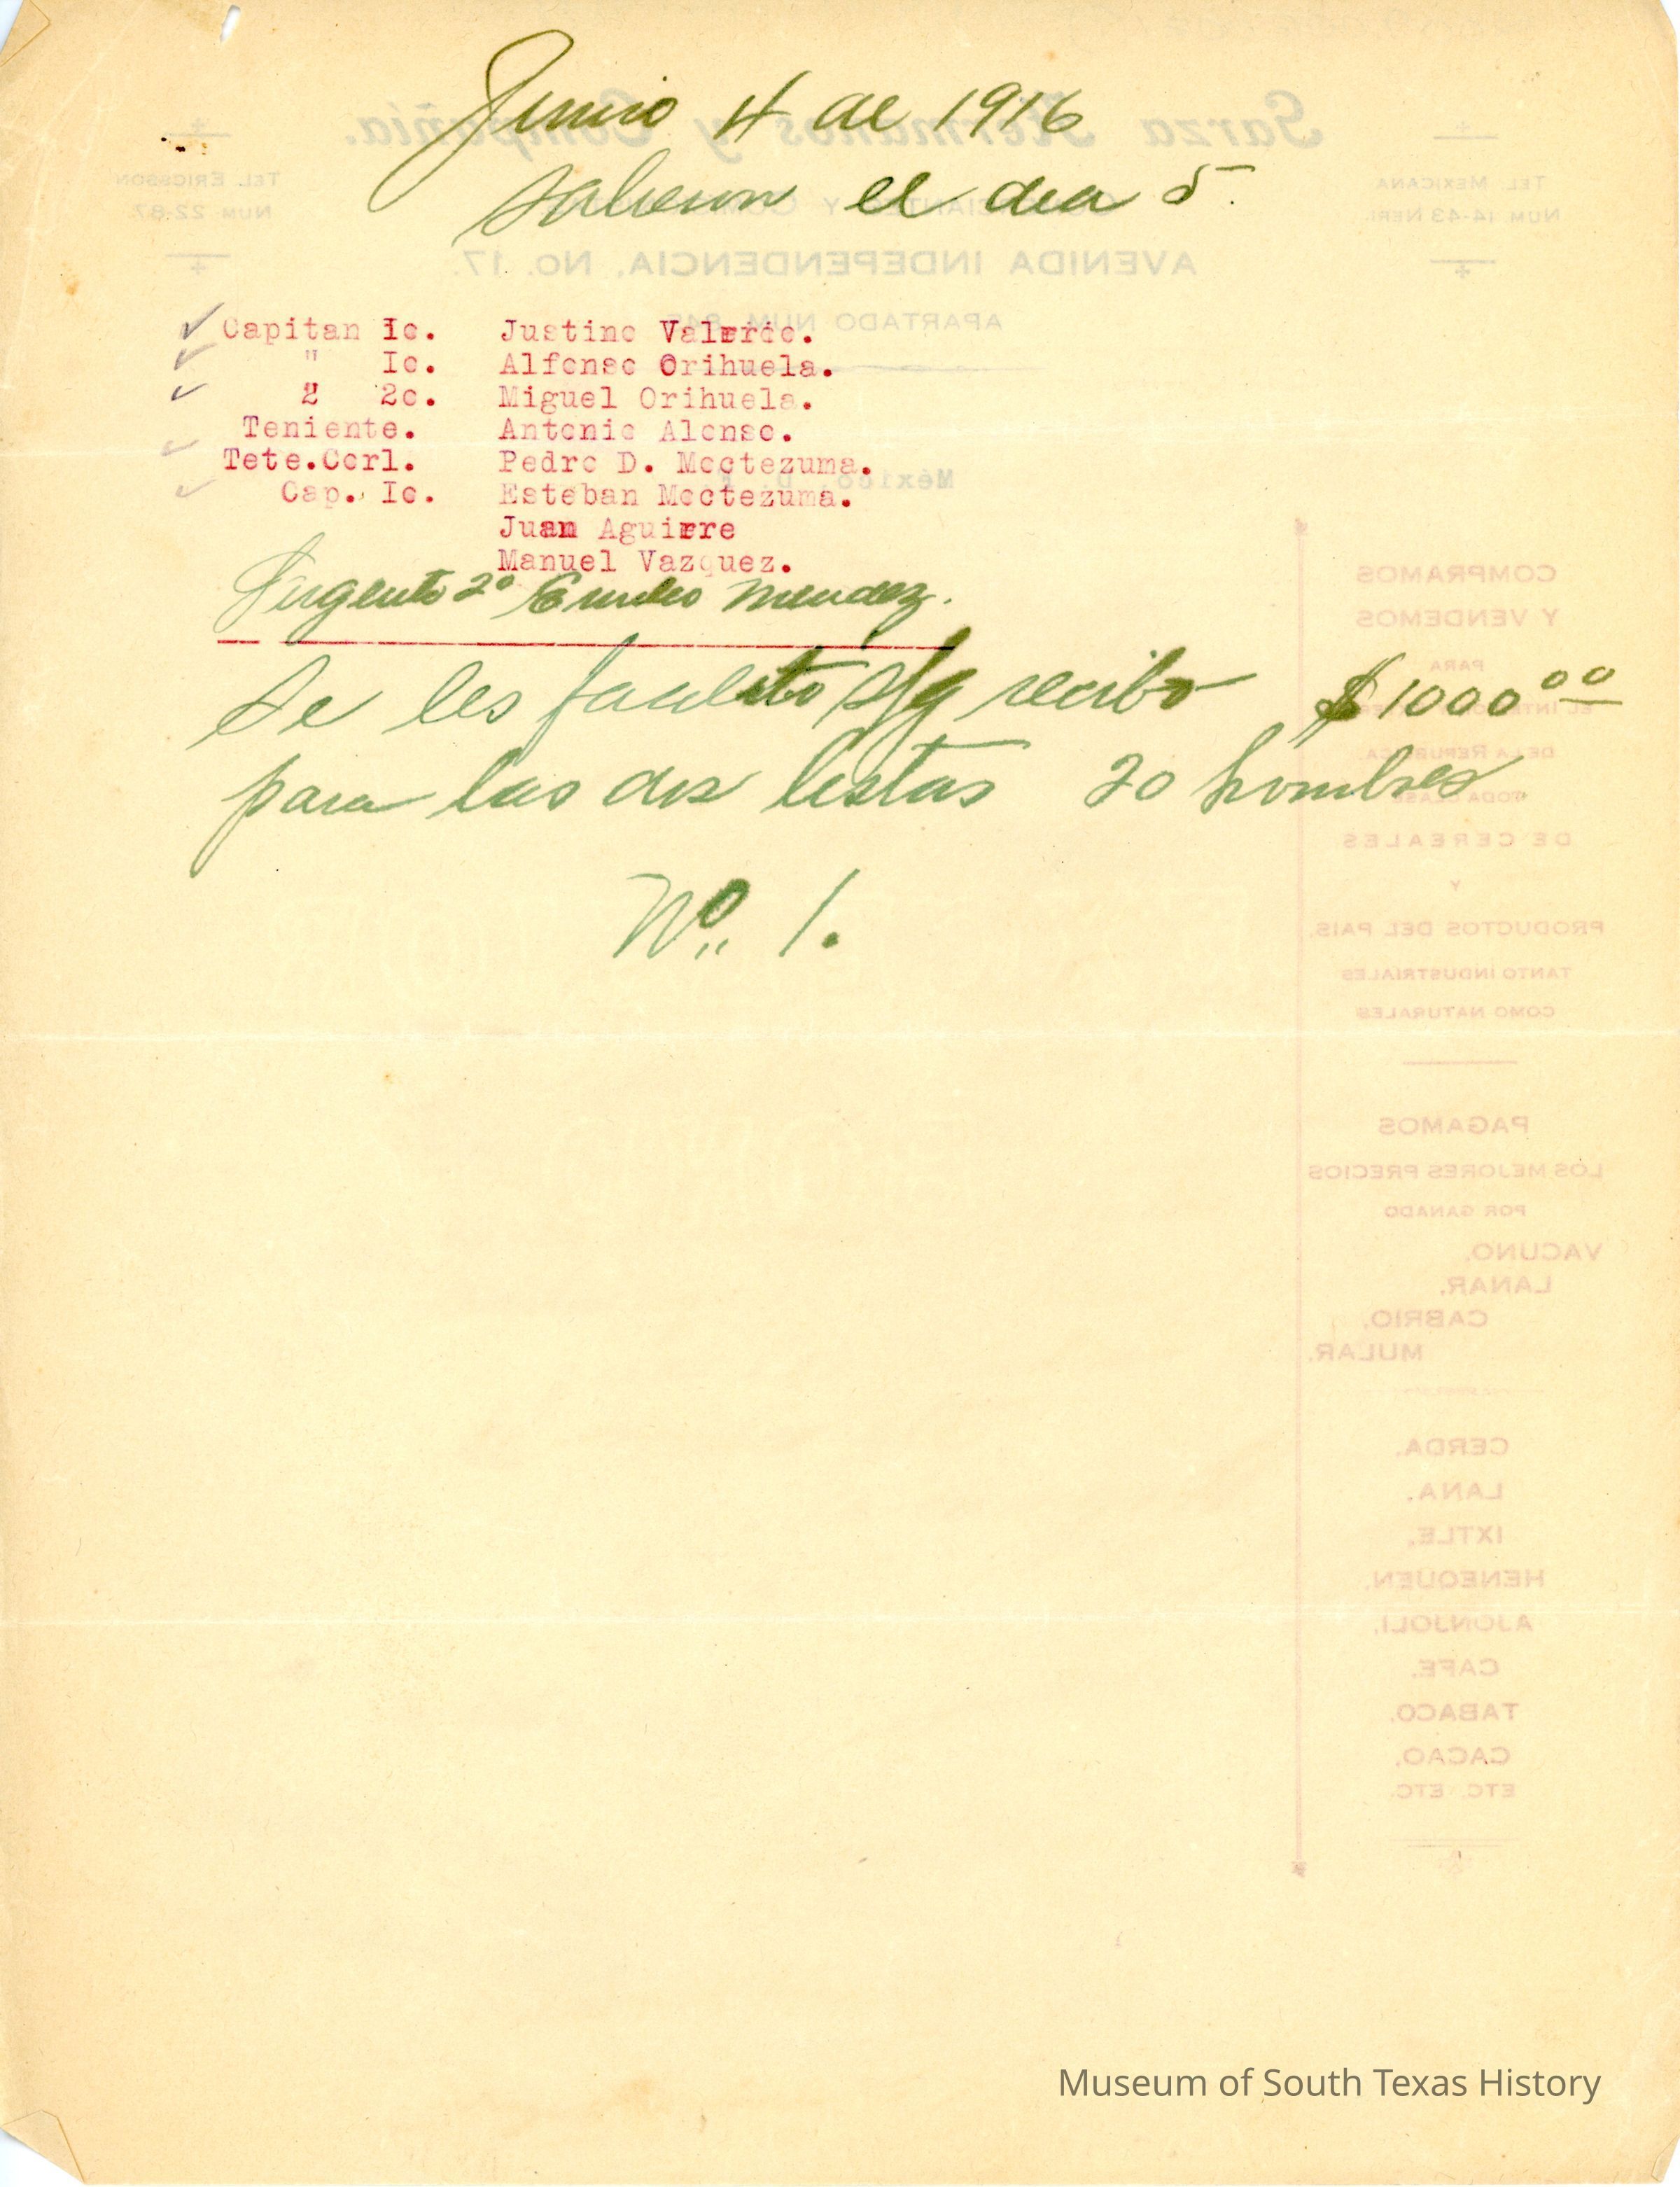 Junio 4 de 1916
salieron el dia 5.
Capitan Io. Justino Valerio.
" Io. Alfonso Orihuela.
" 2o. Miguel Orihuela.
Teniente. Antonio Alonso.
Tete.Corl. Pedro D. Moctezuma.
Cap. Io. Esteban Moctezuma.
Juan Aguirre
Manuel Vazquez.
Sargento 2º Emilio Mendez.
Se les facilito recibo $1000 00
para las dos listas 20 hombres
Nº. 1.
Garza Hermanos y Compañia.
TEL. ERICSSON
NUM. 22-87.
TEL. MEXICANA
NUM. 14-43 NERI.
AVENIDA INDEPENDENCIA, No. 17.
APARTADO NUM.
México, D.
COMPRAMOS
Y VENDEMOS
PARA
DE LA REPUBLICA
DE CEREALES
Y
PRODUCTOS DEL PAIS.
TANTO INDUSTRIALES
COMO NATURALES
PAGAMOS
LOS MEJORES PRECIOS
POR GANADO
VACUNO.
LANAR.
CABRIO.
MULAR.
CERDA.
LANA.
IXTLE.
HENEQUEN.
AJONJOLI.
CAFE.
TABACO.
CACAO.
ETC. ETC.
Museum of South Texas History